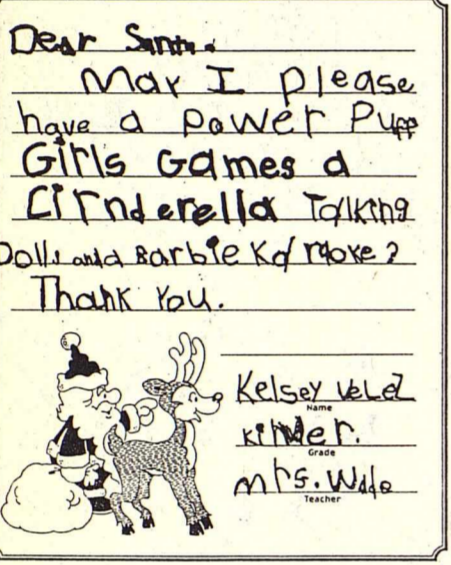 Dear Santa.
May I please
have a power Puff
Girls Games a
Cirnderella Talking
Doll, and a Barbie Kd raoke?
Thank You.
Kelsey Velez
Name
kinder.
Grade
mrs. Wade
Teacher